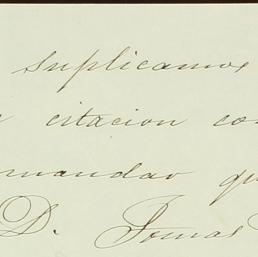 suplicamos
citacion con
mandar qu
D. Tomas